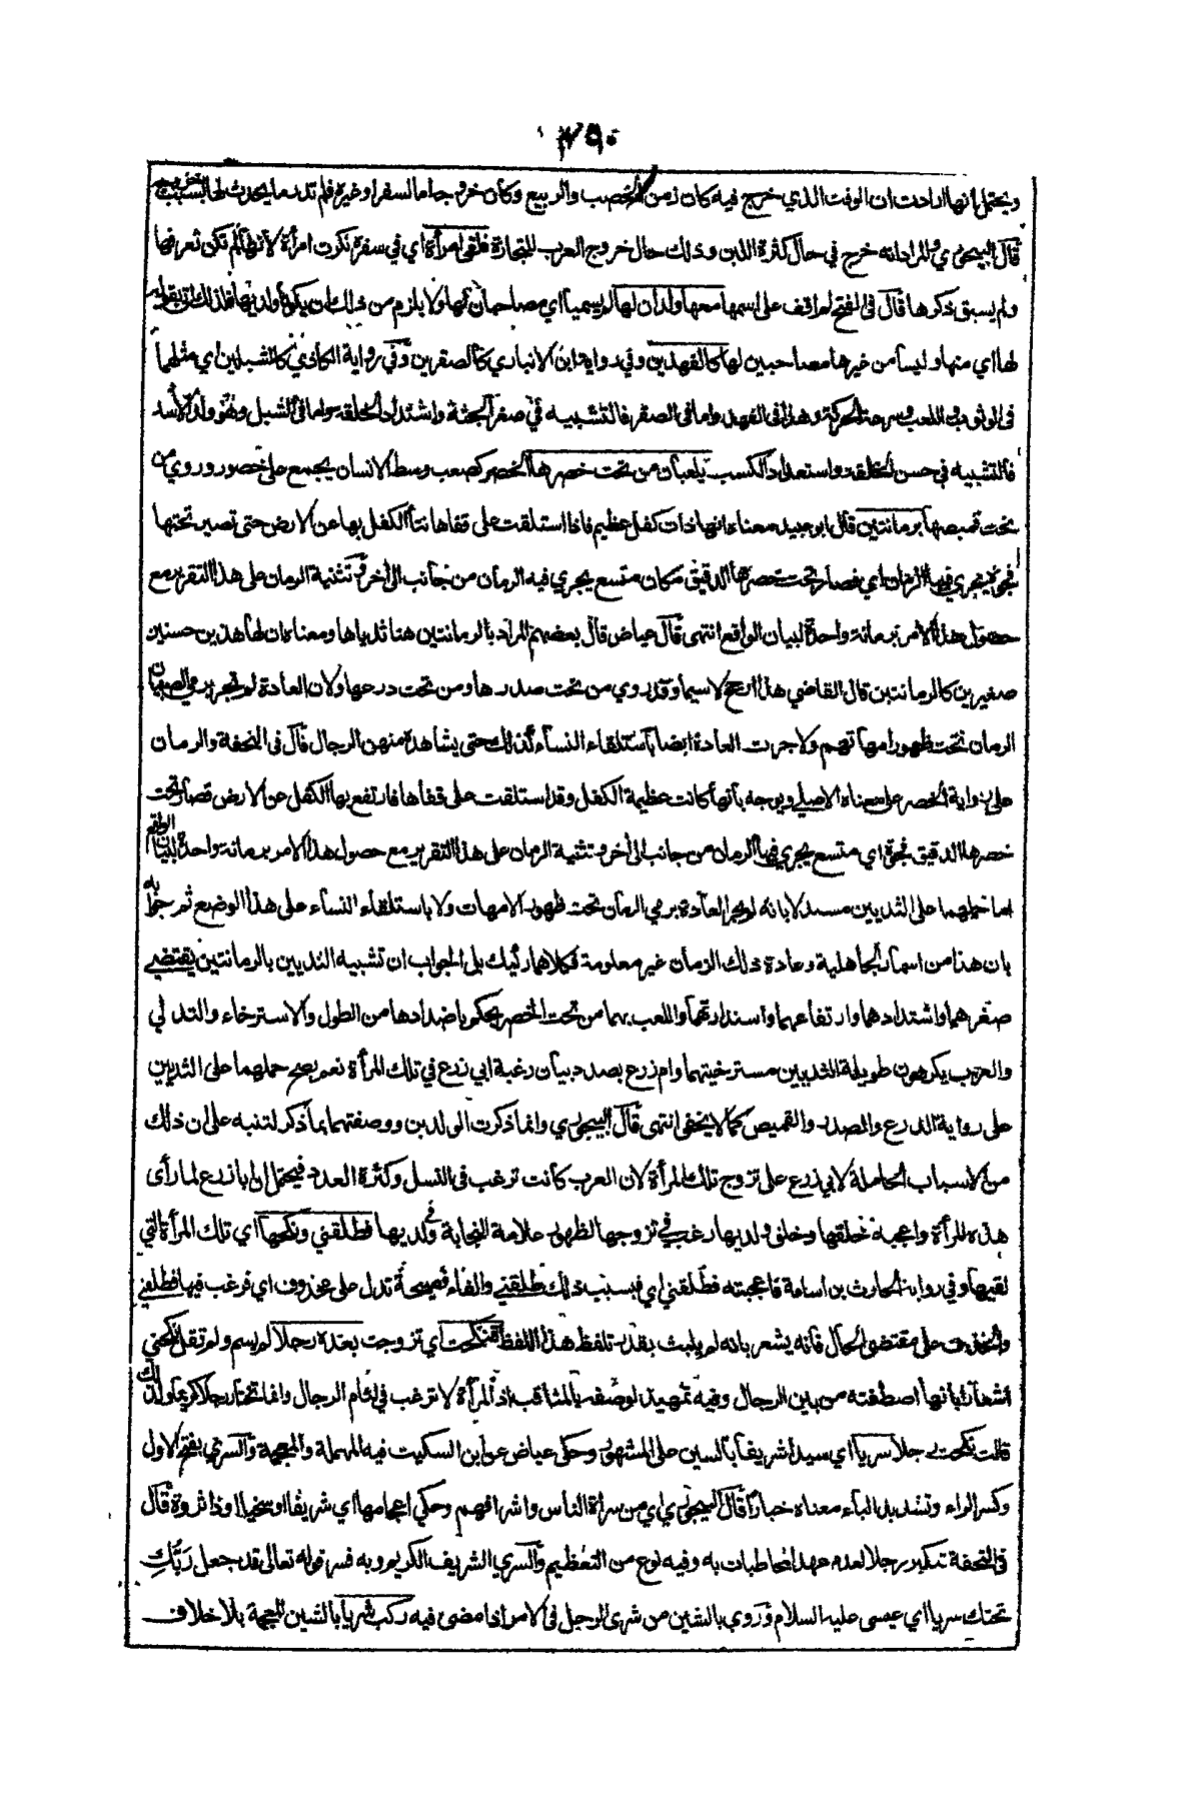 ٢٥٠
ويحتمل انها ارادت ان الوقت الذي خرج فيه كان زمن الخصب والربيع وكان خروجه اما لسفر او غيره فلم تدر ما يحدث لها بسبب خروجه
قال البيجوري والمراد انه خرج في حال كثرة اللبن وذلك حال خروج العرب للتجارة فلقي امرأة اي في سفره نكرت امرأة لانها لم تكن تعرفها
ولم يسبق ذكرها قال في الفتح لم اقف على اسمها معها ولدان لها لم يسميا اي مصاحبان لها ولا يلزم من ذلك ان يكونا ولديها فلذلك اتى بقوله
لها اي منها وليسا من غيرها مصاحبين لها كالفهدين وفي رواية ابن الانباري كالصقرين وفي رواية الكاذي كالشبلين اي مثلهما
في الوثوب واللعب وسرعة الحركة وهذا في الفهد واما في الصقر فالتشبيه في صغر الجثة واشتداد الخلقة واما في الشبل وهو ولد الاسد
فالتشبيه في حسن الخلقة واستعداد الكسب يلعبان من تحت خصرها الخصر كصعب وسط الانسان يجمع على خصور وروي من
تحت قميصها برمانتين قال ابو عبيد معناه انها ذات كفل عظيم فاذا استلقت على قفاها نتأ الكفل بها عن الارض حتى تصير تحتها
فجوة يجري فيها الرمان اي فصار تحت خصرها الدقيق مكان متسع يجري فيه الرمان من جانب الى آخر وتثنية الرمان على هذا التقرير مع
حصول هذا الامر برمانة واحدة لبيان الواقع انتهى قال عياض قال بعضهم المراد بالرمانتين هنا ثدياها ومعناه ان لها نهدين حسنين
صغيرين كالرمانتين قال القاضي هذا ارجح لاسيما وقد روي من تحت صدرها ومن تحت درعها ولان العادة لم تجر برمي الصبيان
الرمان تحت ظهور امهاتهم ولا جرت العادة ايضا باستلقاء النساء كذلك حتى يشاهده منهن الرجال قال في التحفة والرمان
على رواية الخصر على معناه الاصلي ويوجه بانها كانت عظيمة الكفل وقد استلقت على قفاها فارتفع بها الكفل عن الارض فصار تحت
خصرها الدقيق فجوة اي متسع يجري فيها الرمان من جانب الى آخر وتثنية الرمان على هذا التقرير مع حصول هذا الامر برمانة واحدة لبيان الواقع
اما حملهما على الثديين مستدلا بانه لم يجر العادة برمي الرمان تحت ظهور الامهات ولا باستلقاء النساء على هذا الوضع ثم جوابه
بان هذا من اسمار الجاهلية وعادة ذلك الزمان غير معلومة فكلاهما ركيك بل الجواب ان تشبيه الثديين بالرمانتين يقتضي
صغرهما واشتدادهما وارتفاعهما واستدارتهما واللعب بهما من تحت الخصر يحكم باضدادها من الطول والاسترخاء والتدلي
والعرب يكرهون طويلة الثديين مسترخيتهما وام زرع بصدد بيان رغبة ابي زرع في تلك المرأة نعم يصح حملهما على الثديين
على رواية الدرع والصدر والقميص كما لا يخفى انتهى قال البيجوري وانما ذكرت الولدين ووصفتهما بما ذكر لتنبه على ان ذلك
من الاسباب الحاملة لابي زرع على تزوج تلك المرأة لان العرب كانت ترغب في النسل وكثرة العدد فيحتمل ان ابا زرع لما رأى
هذه المرأة واعجبه خلقها وخلق ولديها رغب في تزوجها لظهور علامة النجابة في ولديها فطلقني ونكحها اي تلك المرأة التي
لقيها وفي رواية الحارث بن اسامة فاعجبته فطلقني اي فبسبب ذلك طلقني والفاء فصيحة تدل على محذوف اي فرغب فيها فطلقني
والحذف على مقتضى الحال فانه يشعر بانه لم يلبث بقدر تلفظ هذا اللفظ فنكحت اي تزوجت بعده رجلا لم يسم ولم تقل نكحني
اشعارا بانها اصطفته من بين الرجال وفيه تمهيد لوصفه بالمناقب اذ المرأة لا ترغب في لئام الرجال وانما تختار رجلا كريما ولذلك
قالت نكحت رجلا سريا اي سيدا شريفا بالسين على المشهور وحكى عياض عن ابن السكيت فيه المهملة والمعجمة والسري بفتح الاول
وكسر الراء وتشديد الياء معناه خيارا قال البيجوري اي من سراة الناس واشرافهم وحكي اعجامها اي شريفا او سخيا او ذا ثروة قال
في التحفة تنكير رجلا لعدم عهد المخاطبات به وفيه نوع من التعظيم والسري الشريف الكريم وبه فسر قوله تعالى قد جعل رَبُّكِ
تحتك سريا اي عيسى عليه السلام وروي بالشين من شرى الرجل في الامر اذا مضى فيه ركب شريا بالشين المعجمة بلا خلاف